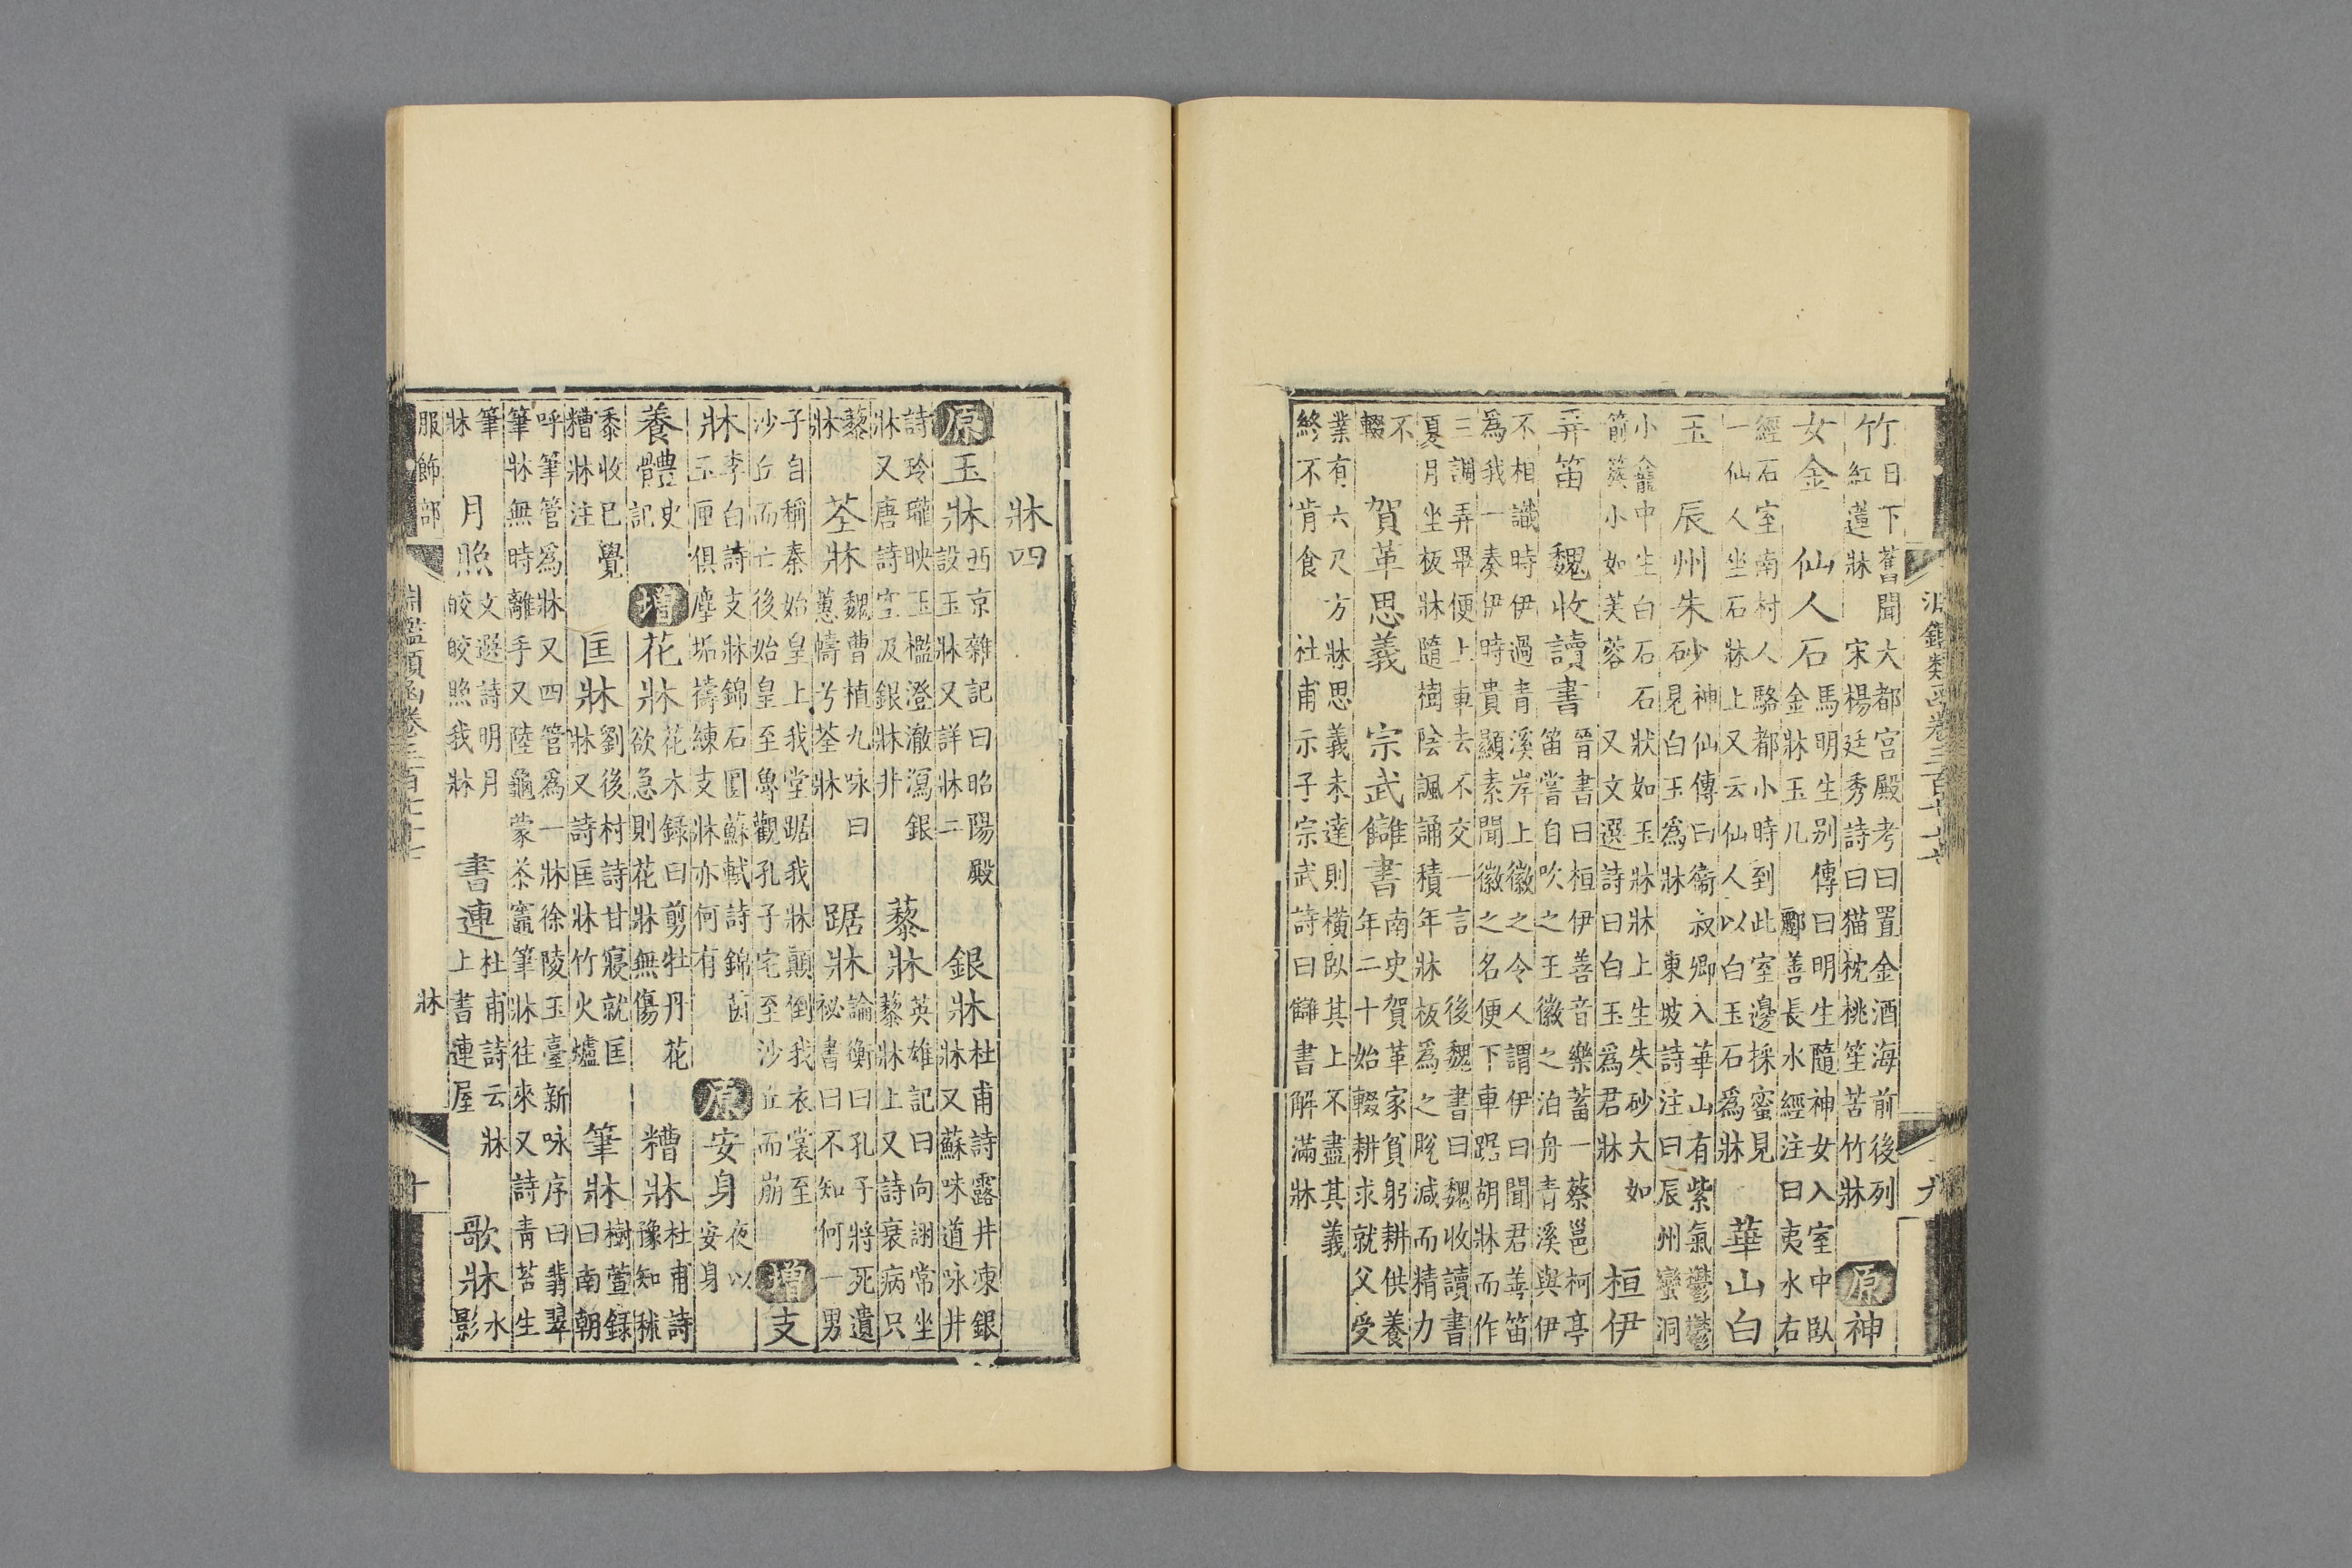 淵鑑類函卷三百七十七 九
竹日下舊聞大都宮殿考曰置金酒海前後列紅蓮牀 宋楊廷秀詩曰猫枕桃笙苦竹牀 原神
女金 仙人石馬明生別傳曰明生隨神女入室中臥金牀玉几 酈善長水經注曰夷水右
經石室南村人駱都小時到此室邊採蜜見一仙人坐石牀上又云仙人以白玉石爲牀 華山白
玉 辰州朱砂神仙傳曰衞叔卿入華山有紫氣鬱鬱見白玉爲牀 東坡詩注曰辰州蠻洞
小龕中生白石石狀如玉牀牀上生朱砂大如箭簇小如芙蓉 又文選詩曰白玉爲君牀 桓伊
弄笛 魏收讀書晉書曰桓伊善音樂蓄一蔡邕柯亭笛嘗自吹之王徽之泊舟青溪與伊
不相識時伊過青溪岸上徽之令人謂伊曰聞君善笛爲我一奏伊時貴顯素聞徽之名便下車踞胡牀而作
三調弄畢便上車去不交一言 後魏書曰魏收讀書夏月坐板牀隨樹陰諷誦積年牀板爲之脫減而精力
不輟 賀革思義 宗武讎書南史賀革家貧躬耕供養年二十始輟耕求就父受
業有六尺方牀思義未達則橫臥其上不盡其義終不肯食 杜甫示子宗武詩曰讎書解滿牀
牀四
原玉牀西京雜記曰昭陽殿設玉牀又詳牀二 銀牀杜甫詩露井凍銀牀又蘇味道咏井
詩玲瓏映玉檻澄澈瀉銀牀又唐詩空汲銀牀井 藜牀英雄記曰向詡常坐藜牀上又詩衰病只
藜牀 荃牀魏曹植九咏曰蕙幬兮荃牀 踞牀論衡曰孔子將死遺祕書曰不知何一男
子自稱秦始皇上我堂踞我牀顛倒我衣裳至沙丘而亡後始皇至魯觀孔子宅至沙丘而崩 增支
牀李白詩支牀錦石圓蘇軾詩錦茵玉匣俱塵垢擣練支牀亦何有 原安身夜以安身
養體史記 增花牀花木錄曰剪牡丹花欲急則花牀無傷 糟牀杜甫詩豫知秫
黍收已覺糟牀注 匡牀劉後村詩甘寢就匡牀又詩匡牀竹火爐 筆牀樹萱錄曰南朝
呼筆管爲牀又四管爲一牀徐陵玉臺新咏序曰翡翠筆牀無時離手又陸龜蒙茶竈筆牀往來又詩青苔生
筆牀 月照文選詩明月皎皎照我牀 書連杜甫詩云牀上書連屋 歌牀水影
服飾部 淵鑑類函卷三百七十七 牀 十